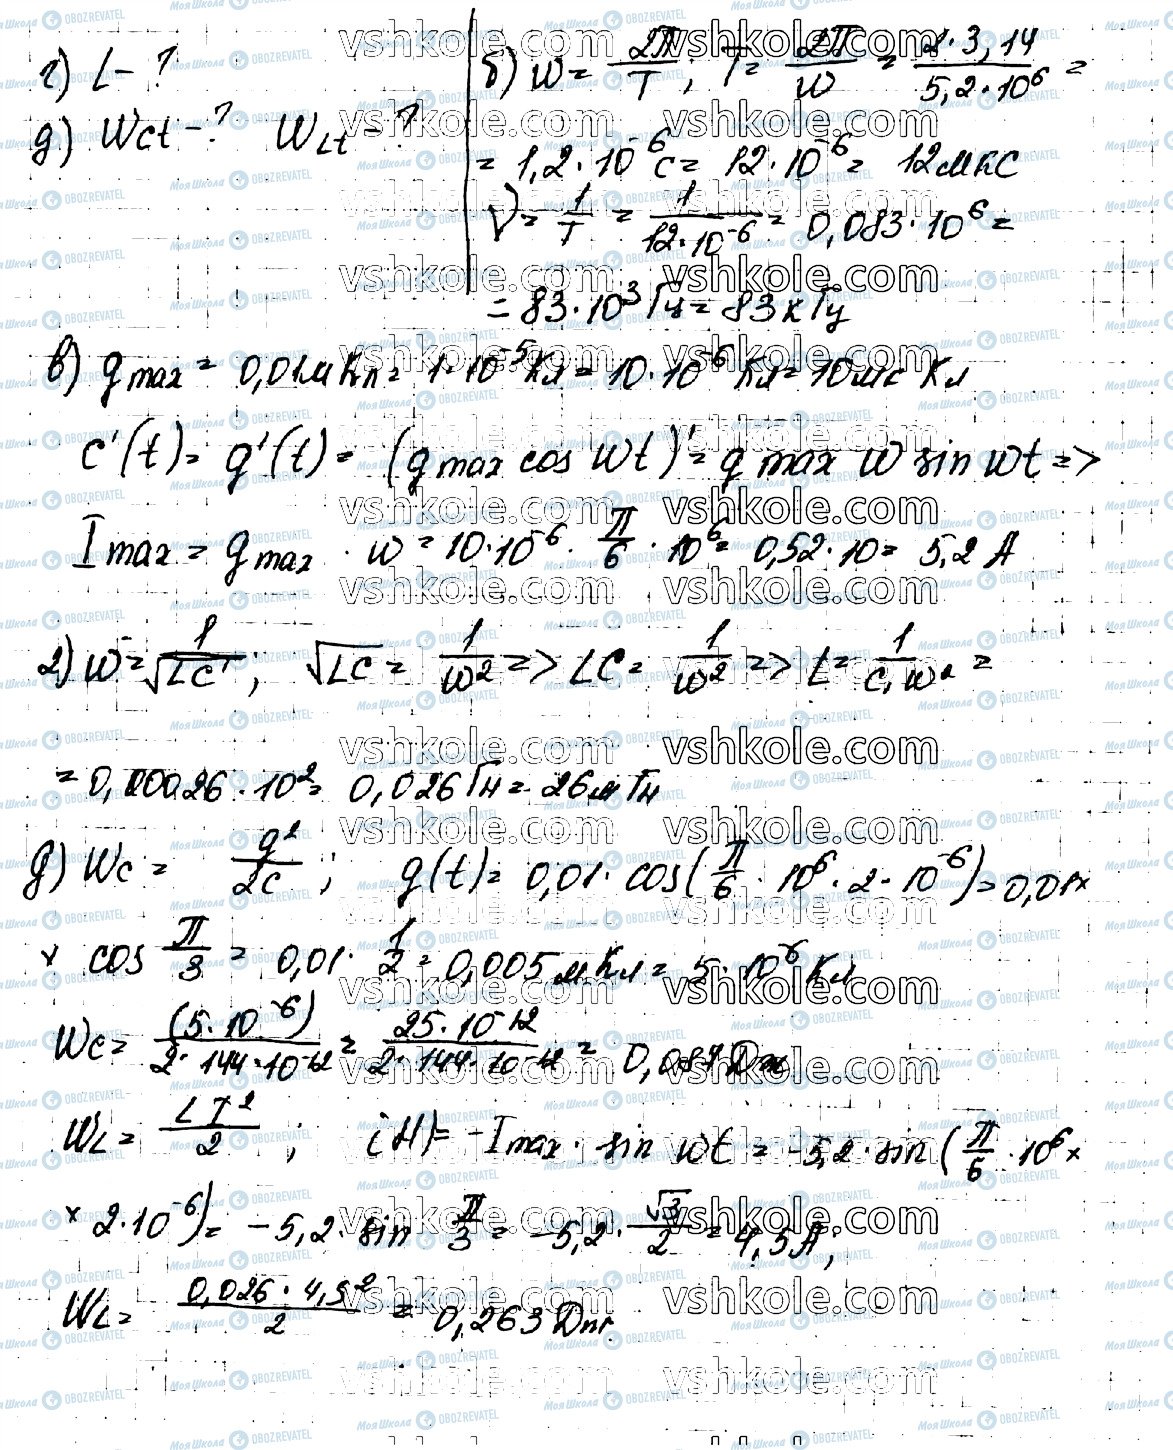 г) L – ?
д) Wct – ?   WLt – ?
б) w = 2π/T ; T = 2π/w = 2·3,14/5,2·10⁶ =
= 1,2·10⁻⁶ с = 12·10⁻⁶ = 12 мкс
ν = 1/T = 1/12·10⁻⁶ = 0,083·10⁶ =
= 83·10³ Гц = 83 кГц
в) qmax = 0,01 мКл = 1·10⁻⁵ Кл = 10·10⁻⁶ Кл = 10 мк Кл
c'(t) = q'(t) = (qmax cos wt)' = qmax w sin wt =>
Imax = qmax · w = 10·10⁻⁶ · π/6 · 10⁶ = 0,52·10 = 5,2 А
г) w = 1/√LC ; √LC = 1/w² => LC = 1/w² => L = 1/C·w² =
= 0,00026·10² = 0,026 Гн = 26 мГн
д) Wc = q²/2c ; q(t) = 0,01· cos(π/6 · 10⁶ · 2·10⁻⁶) = 0,01×
× cos π/3 = 0,01· 1/2 = 0,005 мКл = 5·10⁻⁶ Кл
Wc = (5·10⁻⁶)/2·144·10⁻¹² = 25·10⁻¹²/2·144·10⁻¹² = 0,087 Дж
WL = LI²/2 ; i(t) = -Imax · sin wt = -5,2· sin(π/6 · 10⁶ ×
× 2·10⁻⁶) = -5,2· sin π/3 = -5,2· √3/2 = 4,5 А;
WL = 0,026·4,5²/2 = 0,263 Дж
vshkole.com
МОЯ ШКОЛА OBOZREVATEL